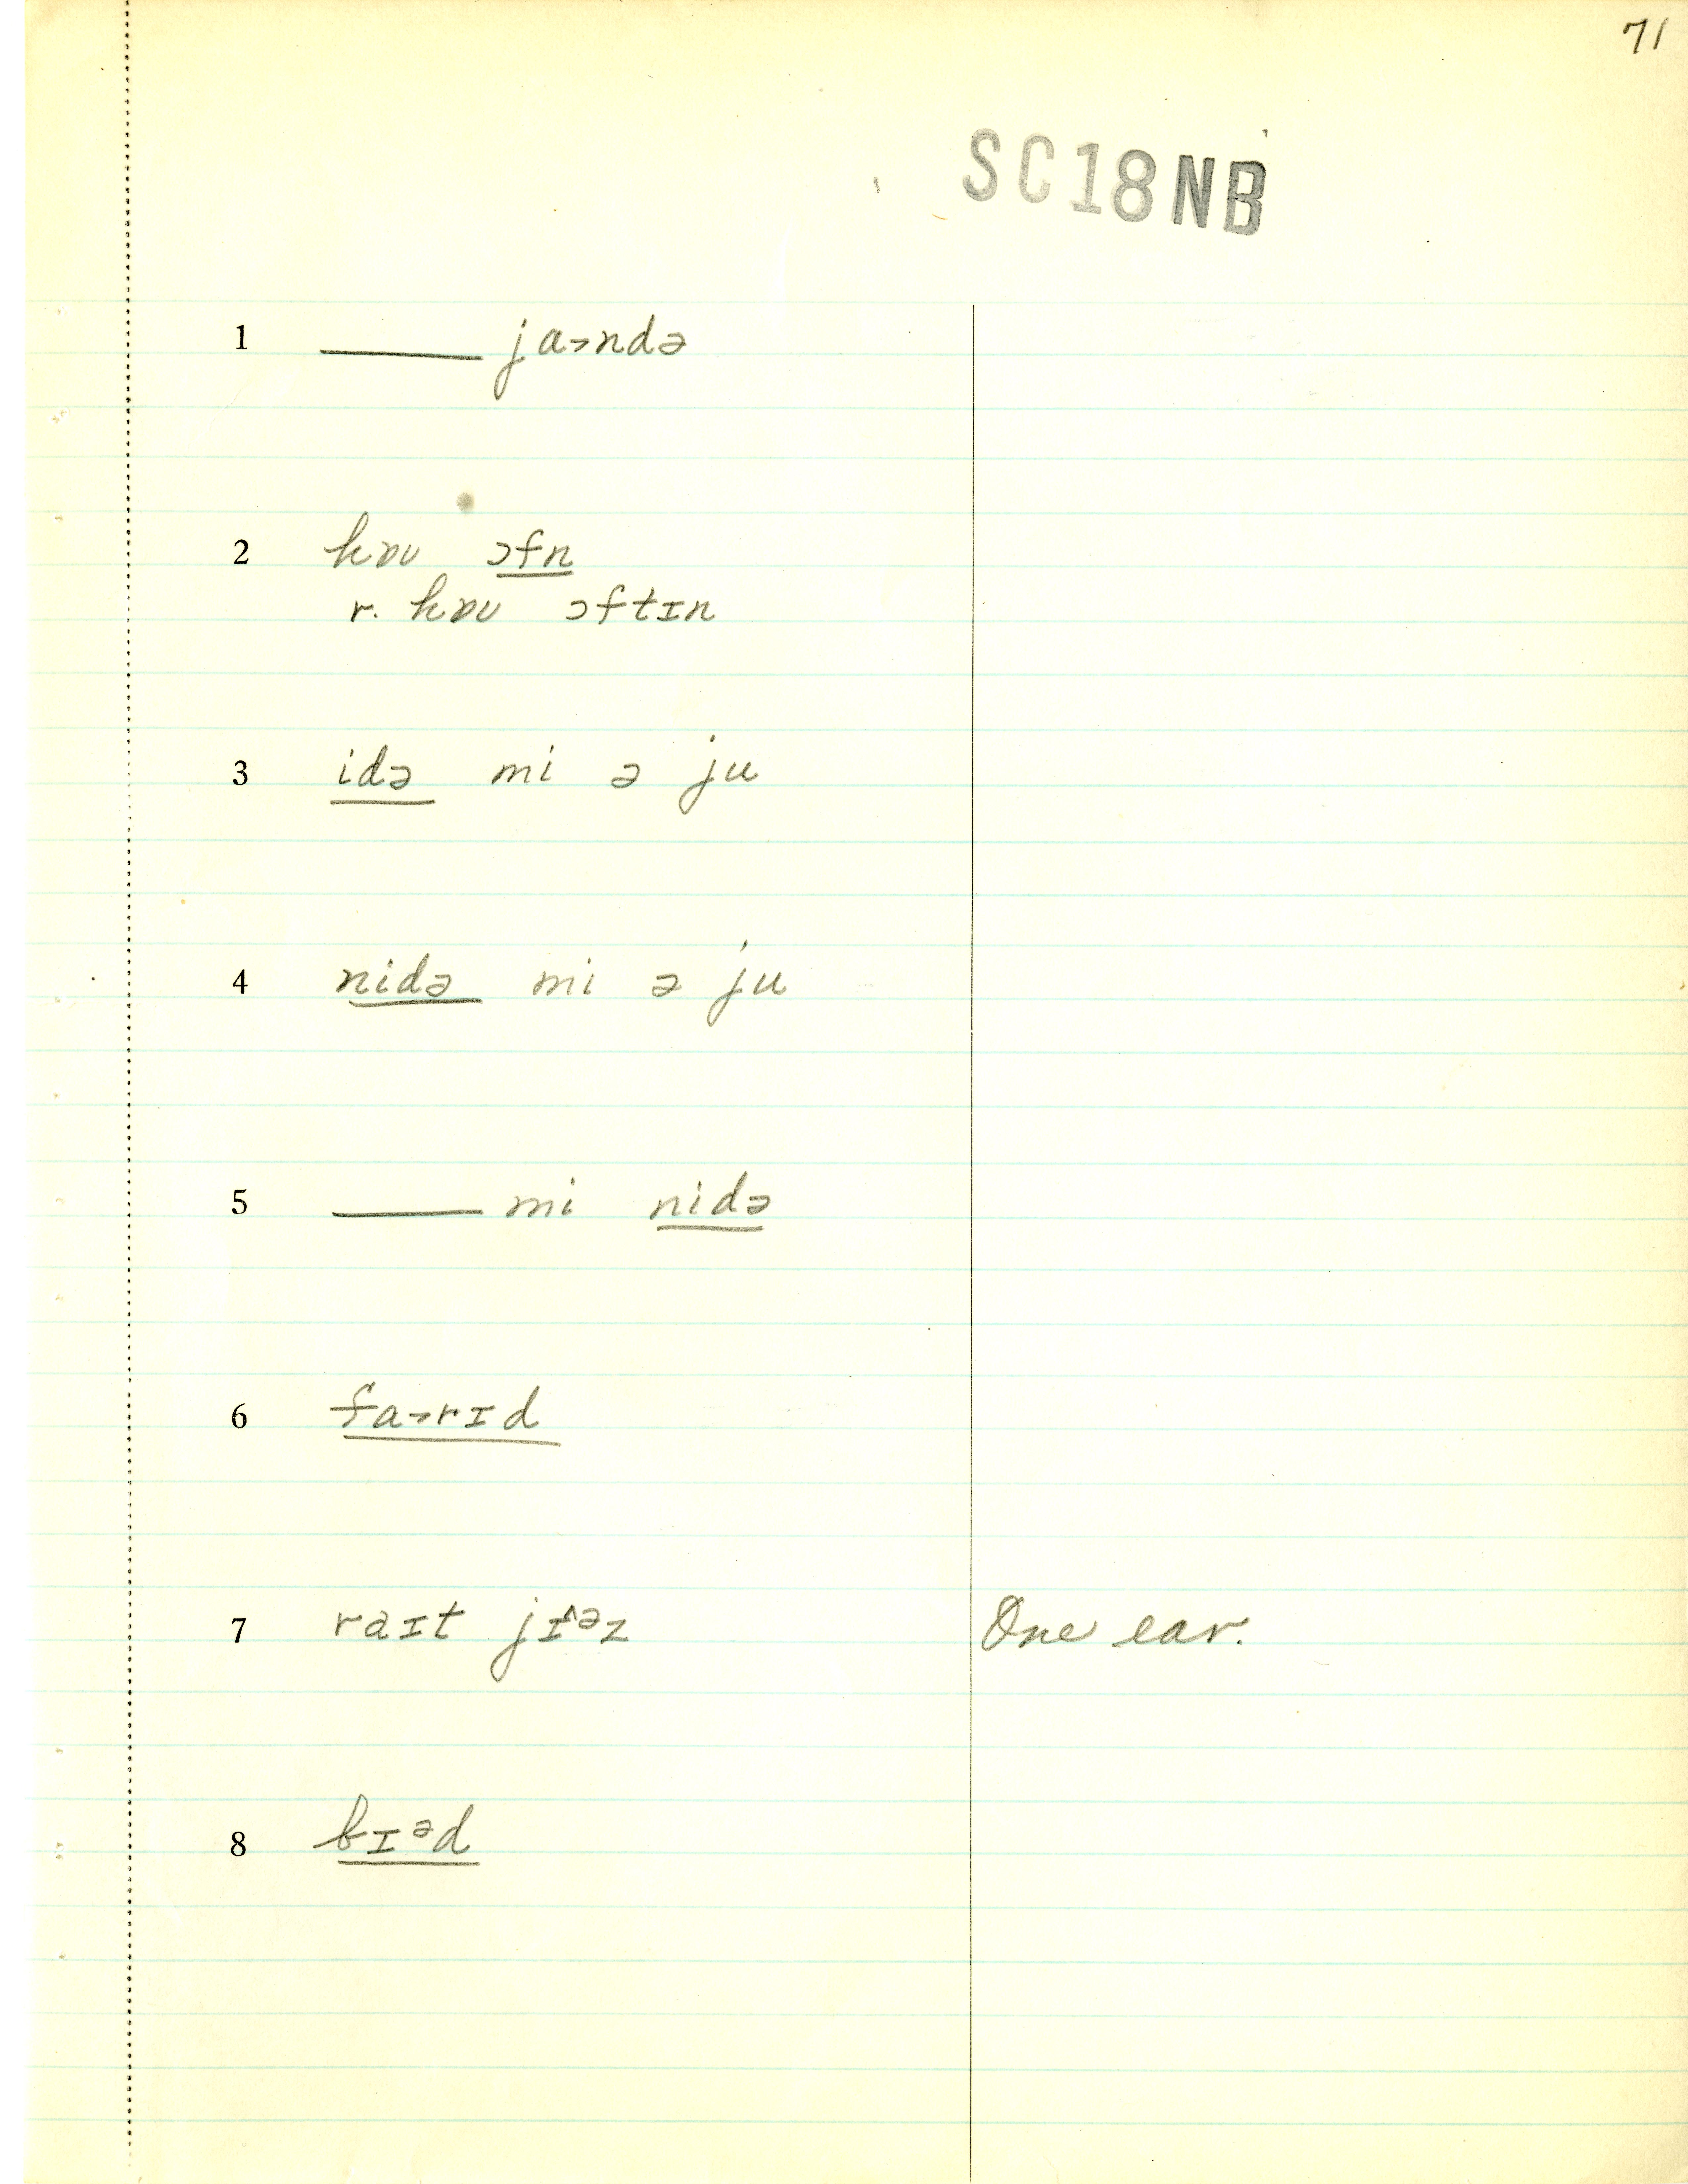 71
SC18NB
1 ______ ja˃ndə
2 hɒu ɔfn
r. hɒu ɔftɪn
3 idə mi ə ju
4 nidə mi ə ju
5 ______ mi nidə
6 fa˃rɪd
7 raɪt jɪ^ᵊz One ear.
8 bɪᵊd